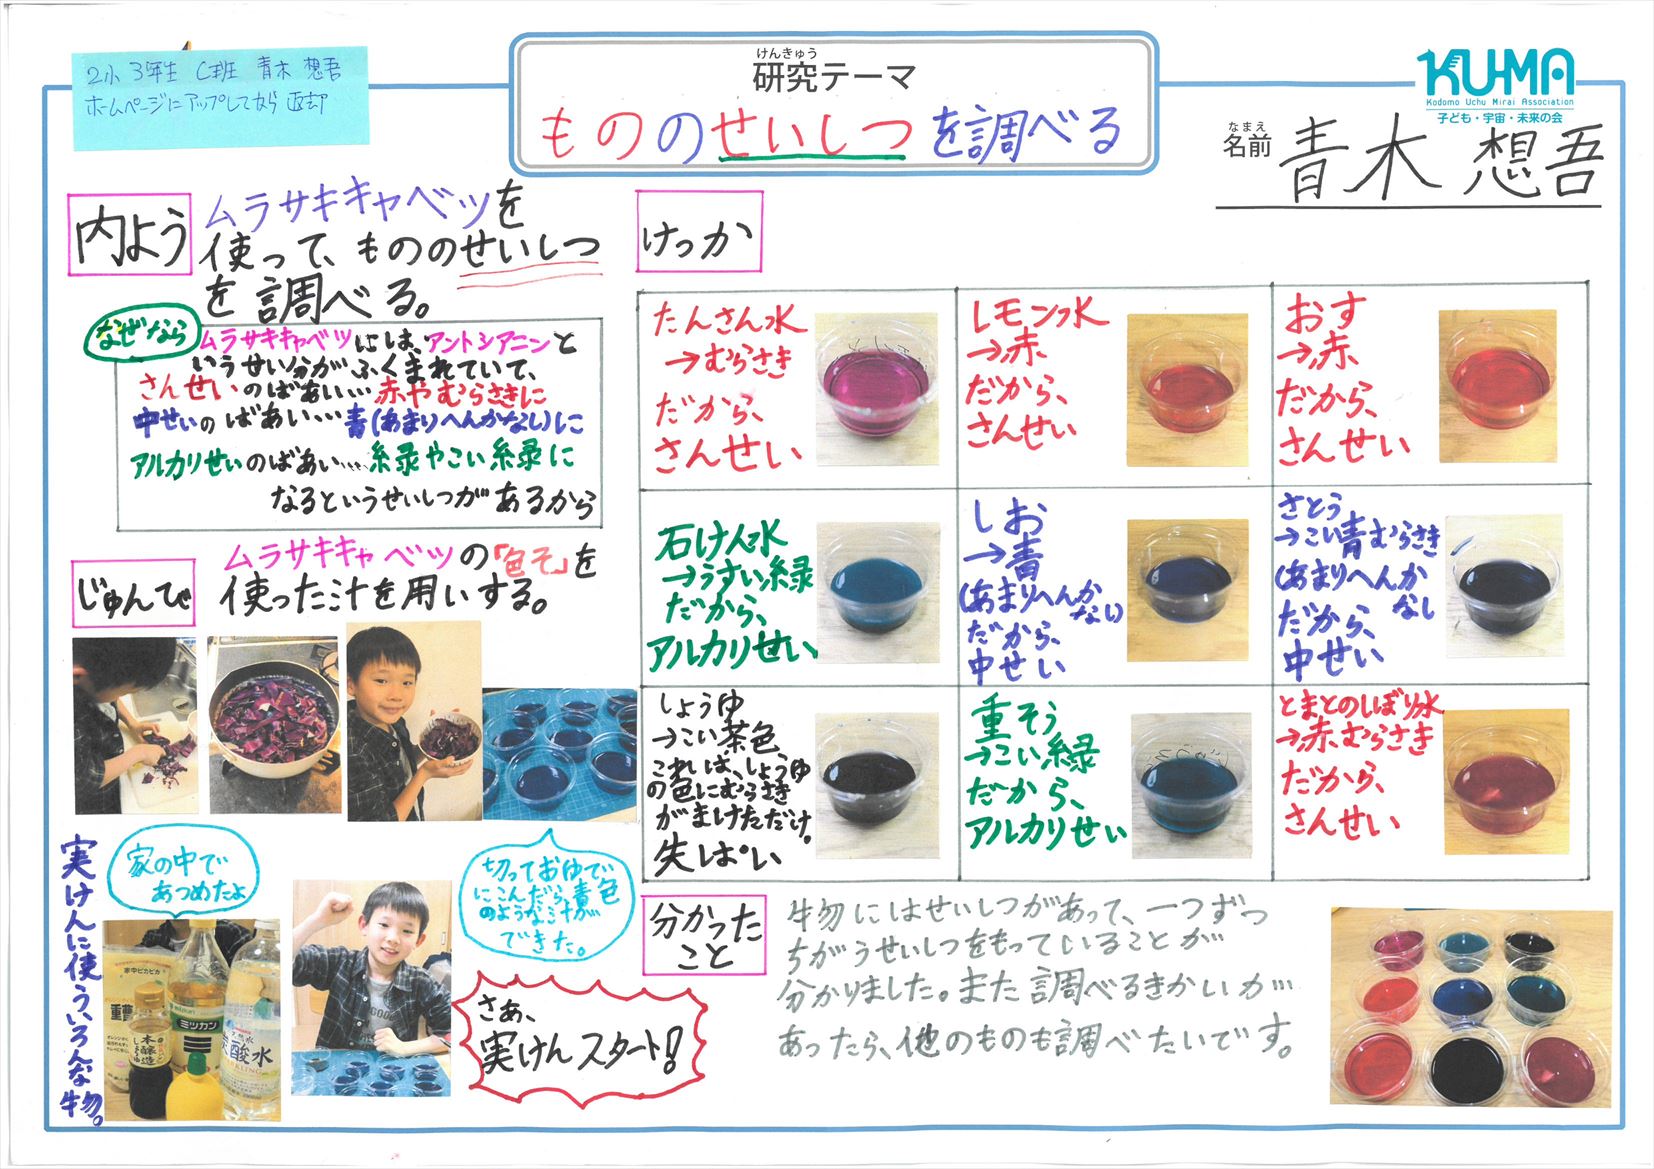 2小 3年生 C班 青木 想吾
ホームページにアップしてから返却
けんきゅう
研究テーマ
もののせいしつを調べる
KUMA
Kodomo Uchu Mirai Association
子ども・宇宙・未来の会
なまえ
名前
青木 想吾
内よう
ムラサキキャベツを
使って、もののせいしつ
を調べる。
なぜなら
ムラサキキャベツには、アントシアニンと
いうせい分がふくまれていて、
さんせいのばあい…赤やむらさきに
中せいのばあい…青(あまりへんかない)に
アルカリせいのばあい…緑やこい緑に
なるというせいしつがあるから
じゅんび
ムラサキキャベツの「色そ」を
使った汁を用いする。
切っておゆで
にこんだら、青色
のような汁が
できた。
実けんに使う、いろんな物。
家の中で
あつめたよ
家中ピカピカ
重曹
本醸造
しょうゆ
ミツカン
炭酸水
さあ、
実けんスタート!
けっか
たんさん水
→むらさき
だから、
さんせい
レモン水
→赤
だから、
さんせい
おす
→赤
だから、
さんせい
石けん水
→うすい緑
だから、
アルカリせい
しお
→青
(あまりへんか
ない)
だから、
中せい
さとう
→こい青むらさき
(あまりへんか
なし
だから、
中せい
しょうゆ
→こい茶色
これは、しょうゆ
の色にむらさき
がまけただけ。
失ぱい
重そう
→こい緑
だから、
アルカリせい
とまとのしぼり水
→赤むらさき
だから、
さんせい
分かった
こと
物にはせいしつがあって、一つずつ
ちがうせいしつをもっていることが
分かりました。また調べるきかいが
あったら、他のものも調べたいです。